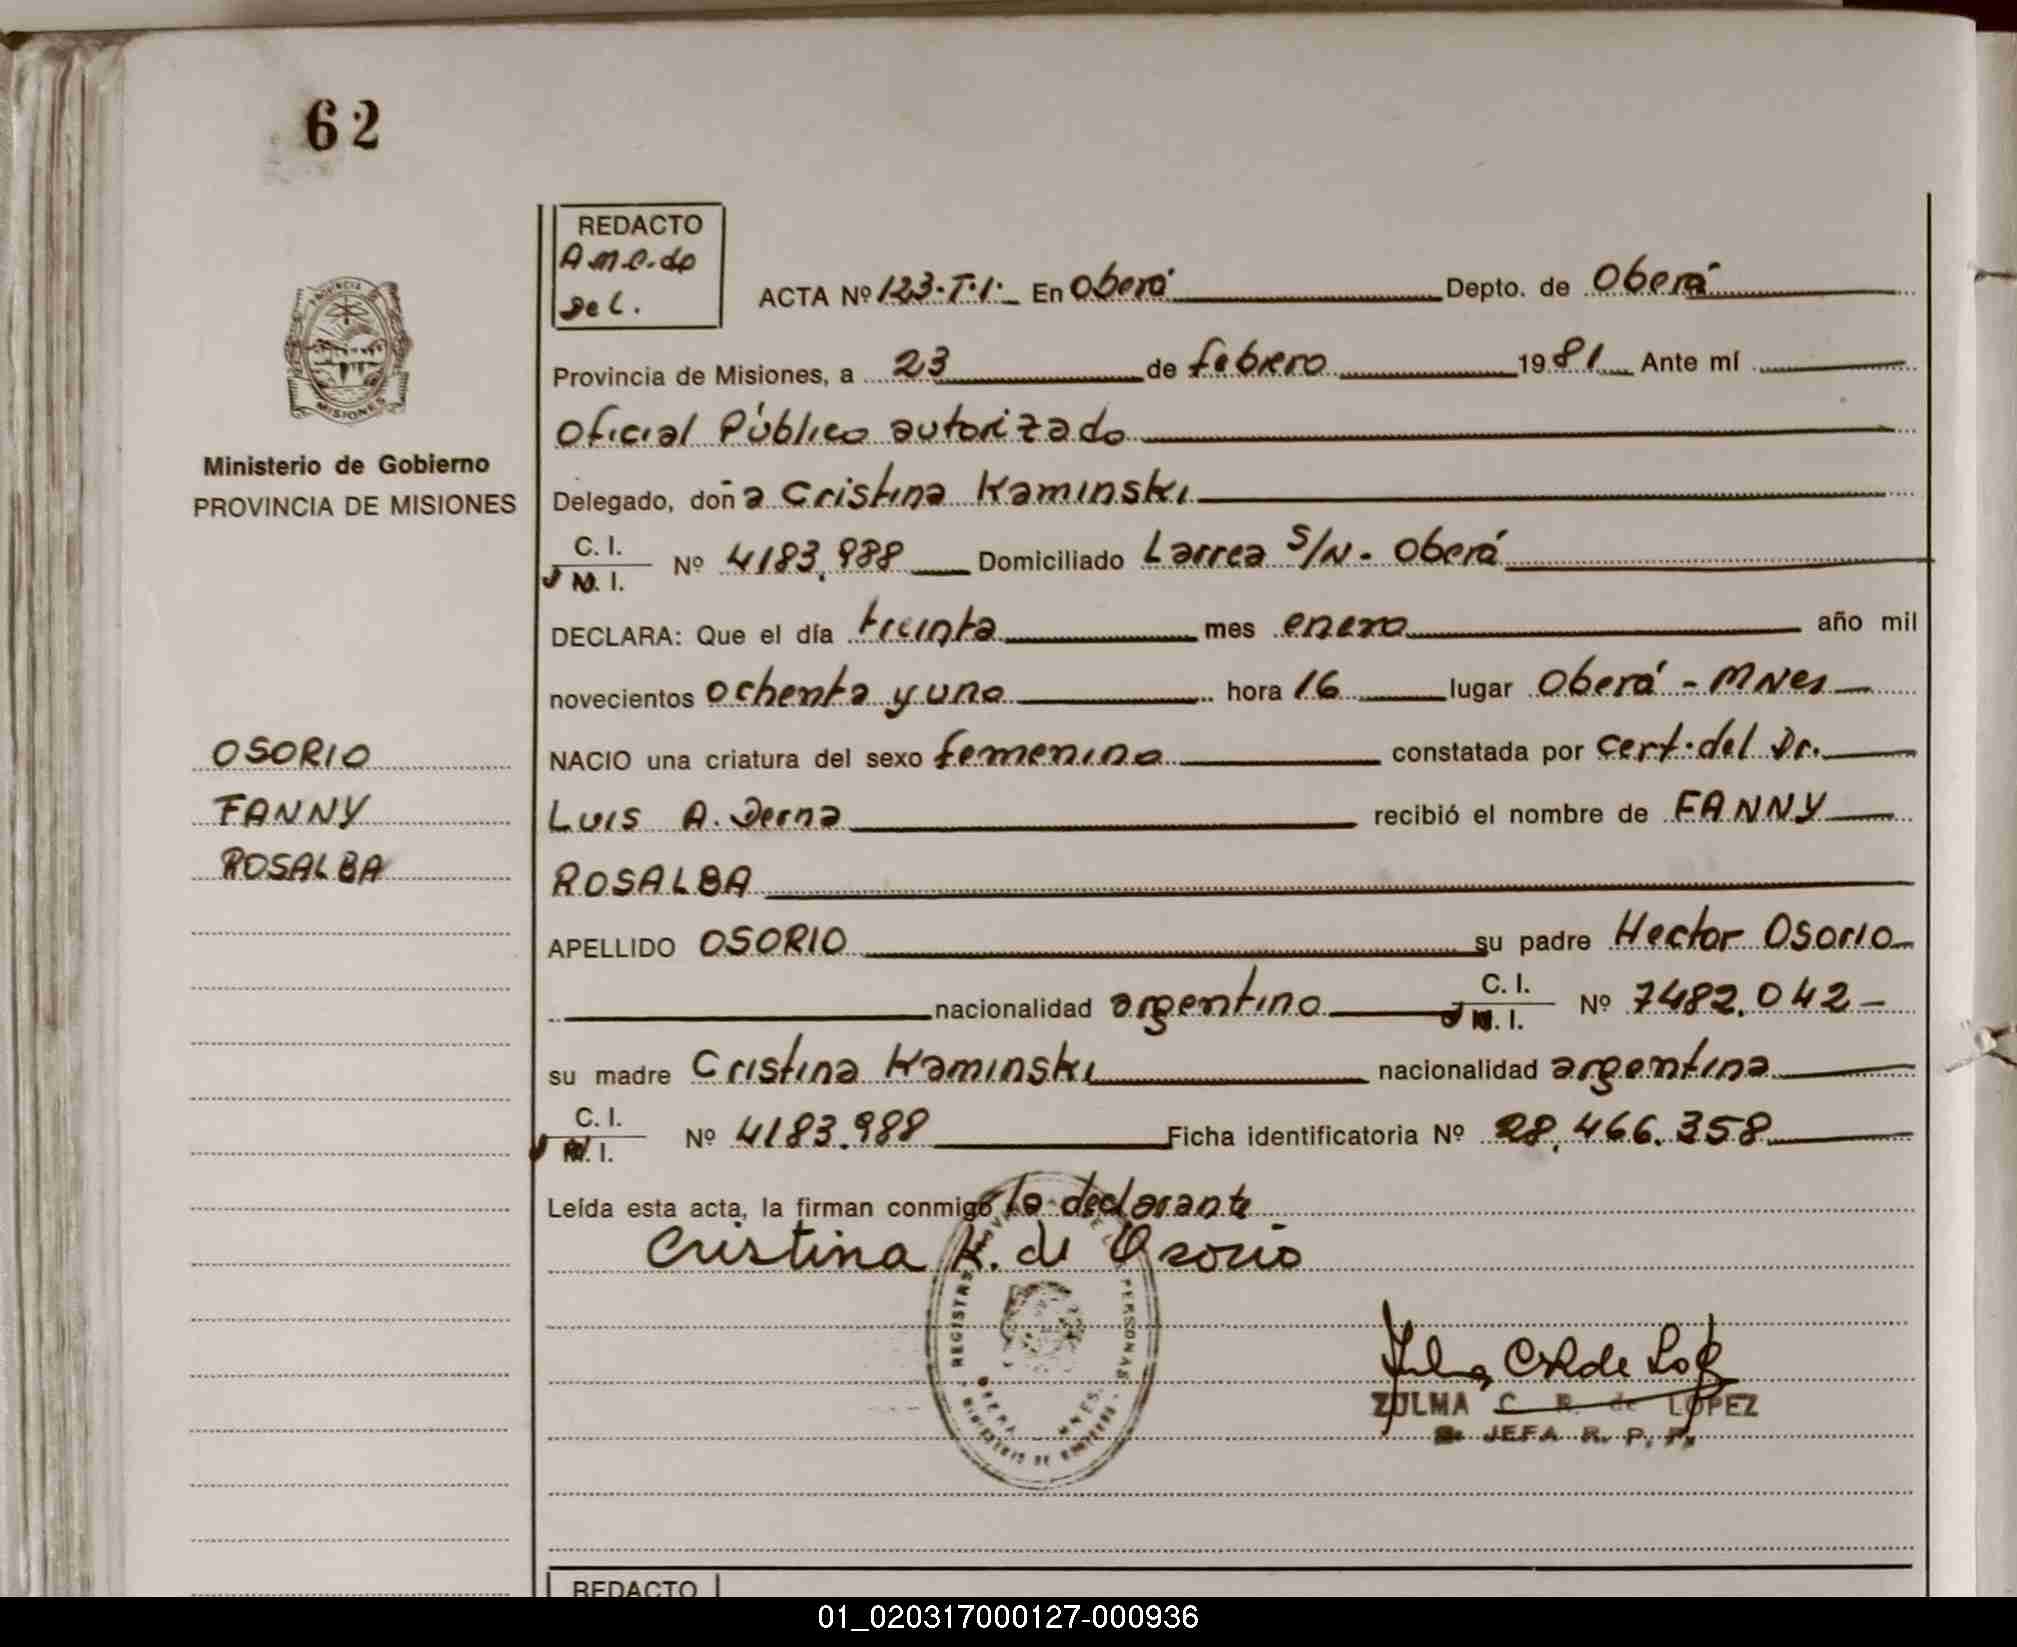 62
REDACTO
A.M.C. de
de L.
ACTA Nº 123.T.1. En Oberá Depto. de Oberá
Provincia de Misiones, a 23 de febrero 1981 Ante mí
Oficial Público autorizado
Delegado, doña Cristina Kaminski
C. I.
M. I. Nº 4183.988 Domiciliado Larrea S/N - Oberá
DECLARA: Que el día treinta mes enero año mil
novecientos ochenta y uno hora 16 lugar Oberá - MNes
NACIO una criatura del sexo femenino constatada por cert. del Dr.
Luis A. Derna recibió el nombre de FANNY
ROSALBA
APELLIDO OSORIO su padre Hector Osorio
nacionalidad argentino C. I. M. I. Nº 7482.042
su madre Cristina Kaminski nacionalidad argentina
C. I.
M. I. Nº 4183.988 Ficha identificatoria Nº 28.466.358
Leída esta acta, la firman conmigo la declarante
Cristina K. de Osorio
ZULMA C. R. de LOPEZ
JEFA R. P. P.
MISIONES
Ministerio de Gobierno
PROVINCIA DE MISIONES
OSORIO
FANNY
ROSALBA
REDACTO
01_020317000127-000936